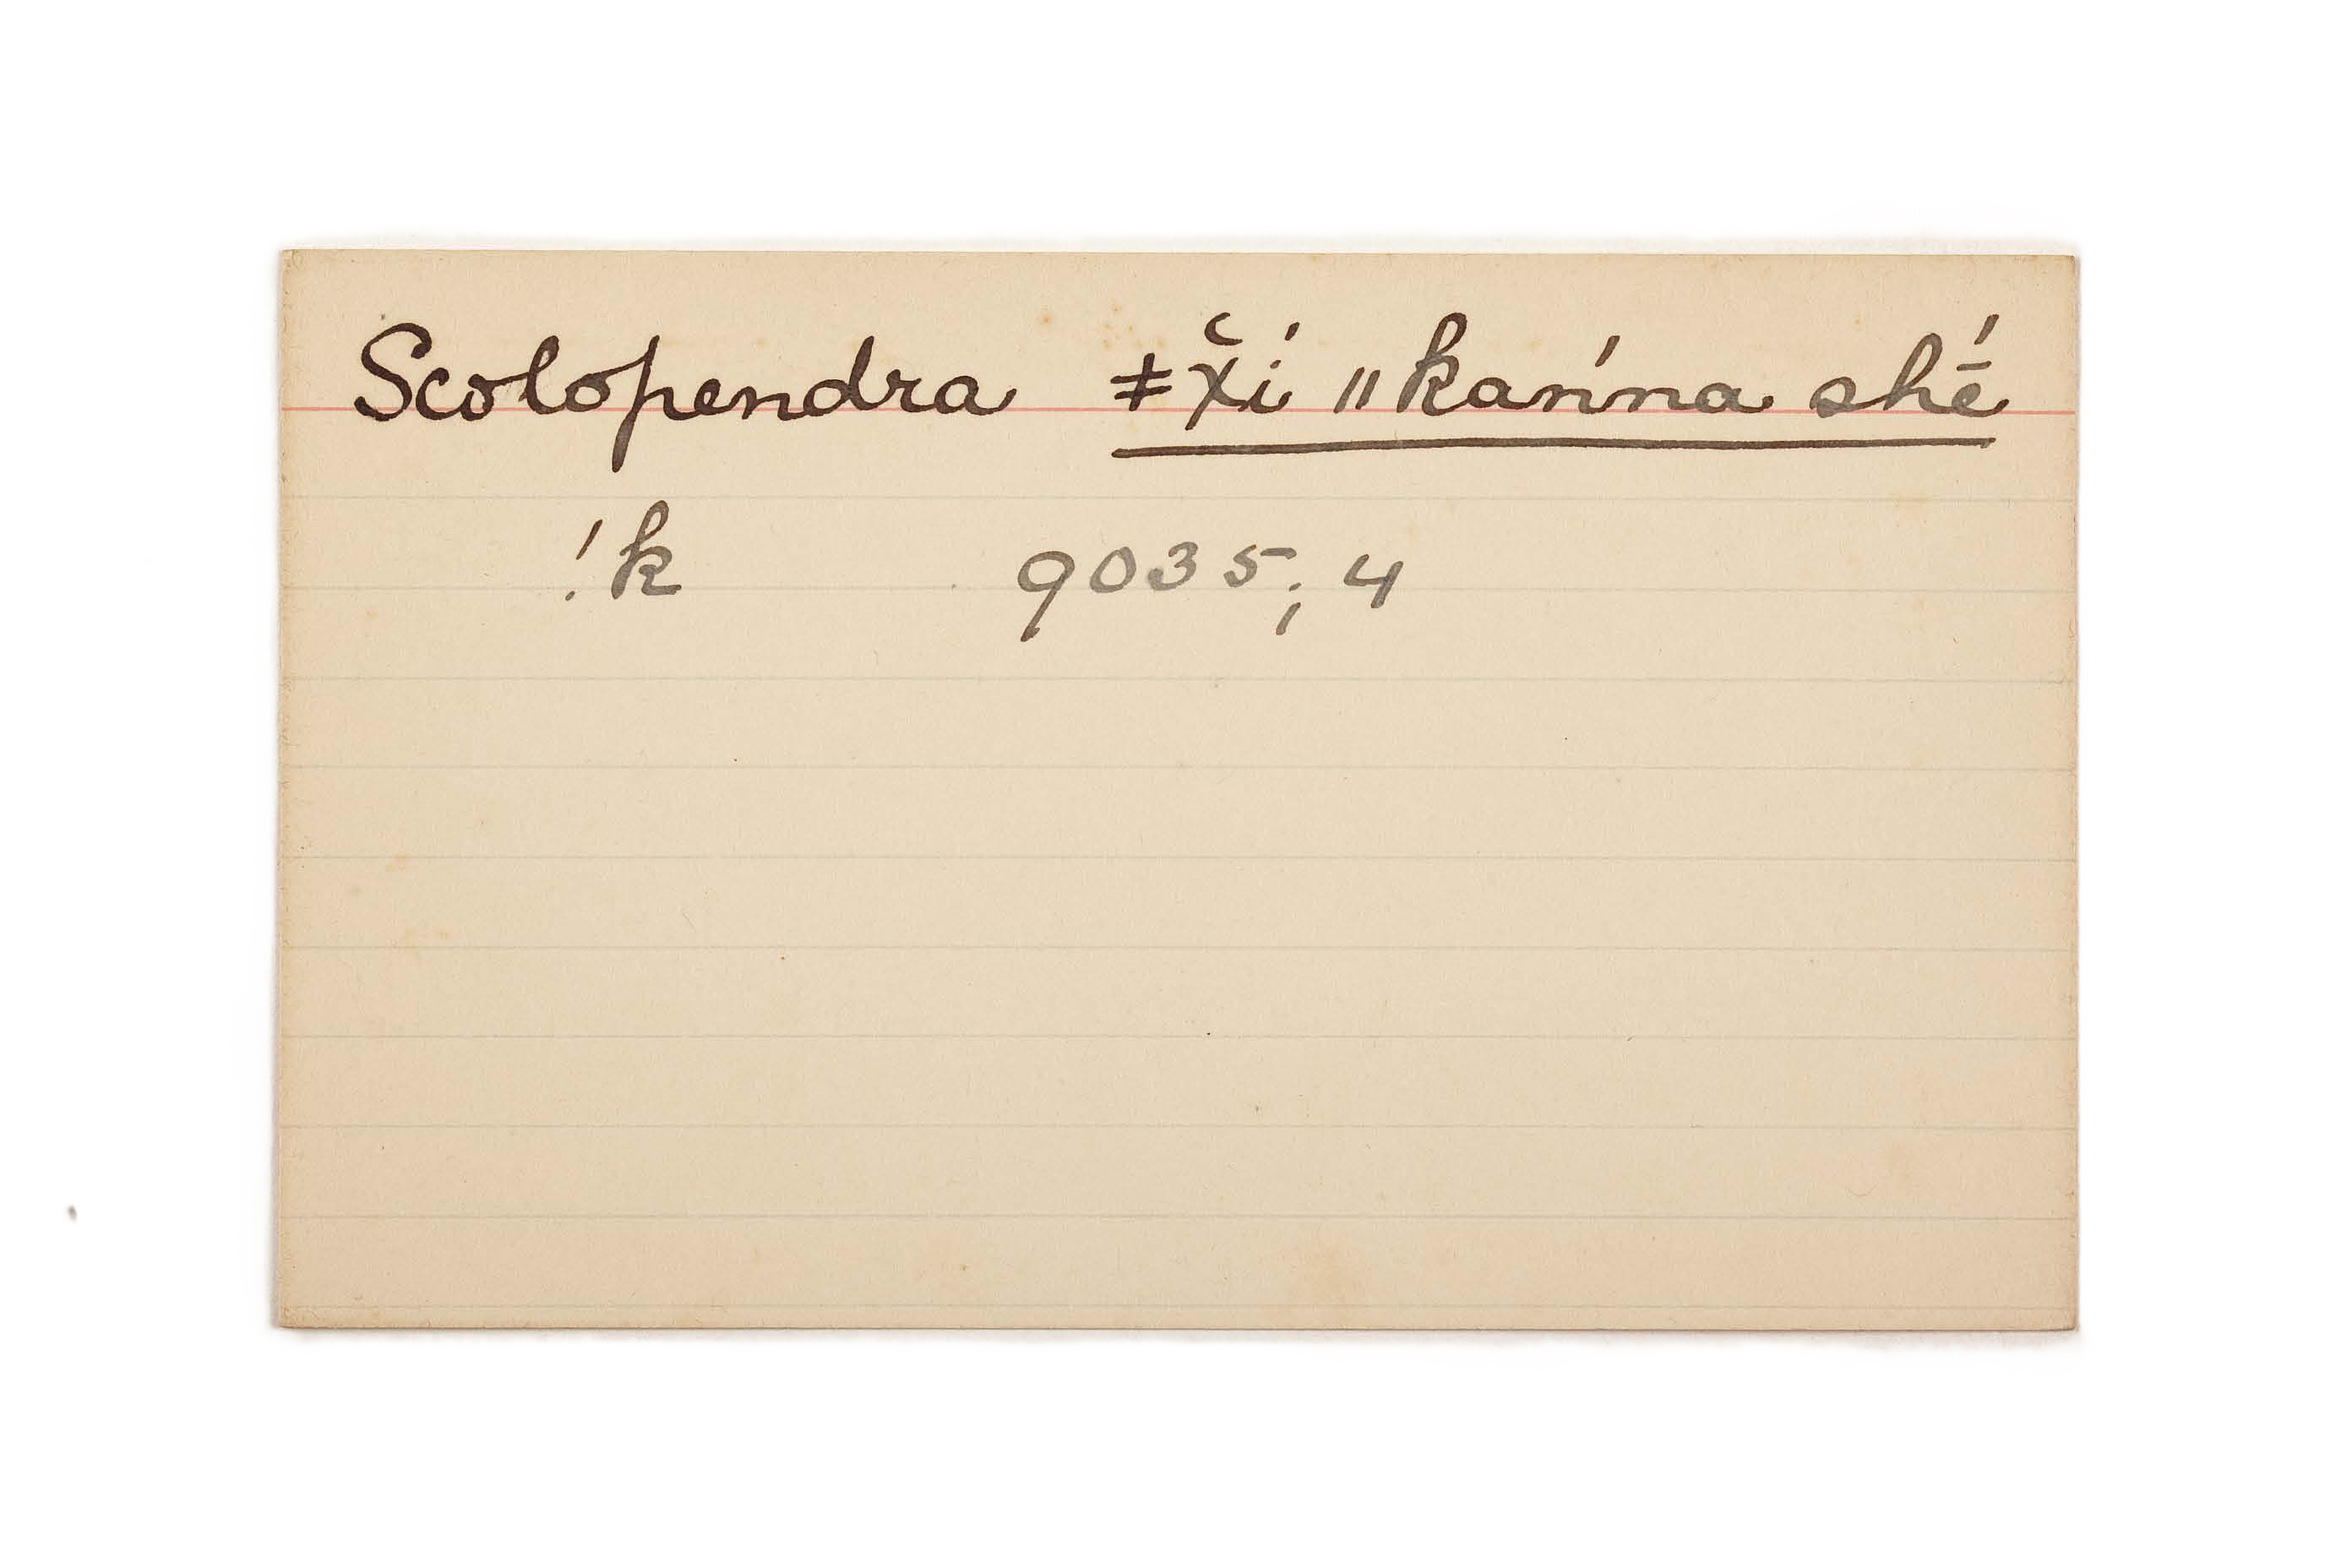 Scolopendra ǂχ̆í ǁkan'na shḗ
!k 9035; 4